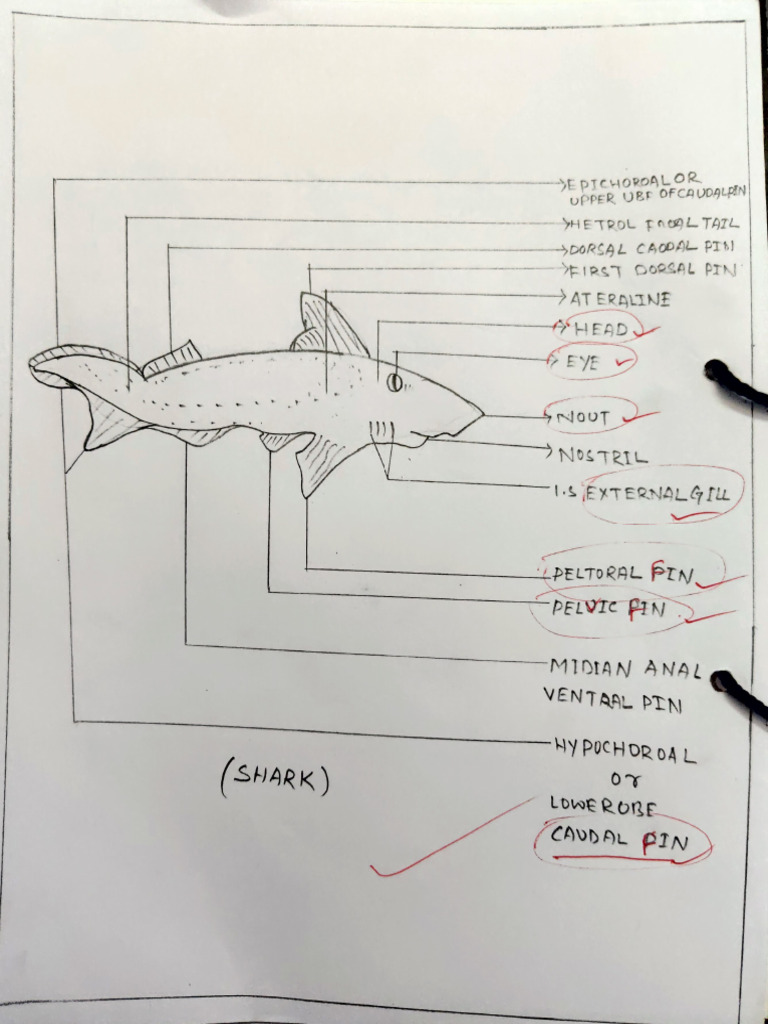 EPICHOROAL OR
UPPER UBF OF CAUDAL PIN
HETROL FOOAL TAIL
DORSAL CAODAL PIN
FIRST DORSAL PIN
ATERALINE
HEAD
EYE
NOUT
NOSTRIL
1.S EXTERNAL GILL
PELTORAL FIN
PELVIC FIN
MIDIAN ANAL
VENTRAL PIN
HYPOCHOROAL
or
LOWEROBE
CAUDAL FIN
(SHARK)